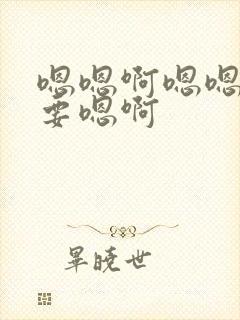 嗯嗯啊嗯嗯
要嗯啊
畢曉世